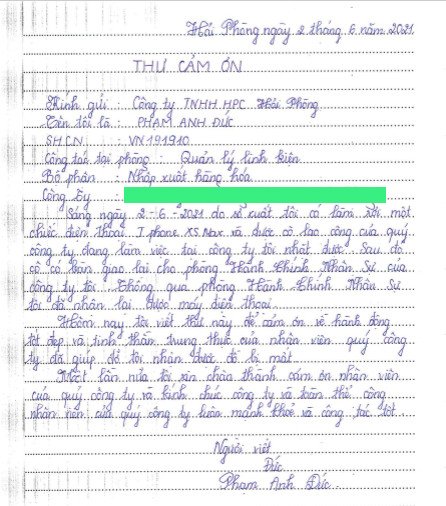 Hải Phòng ngày 2 tháng 6 năm 2021.
THƯ CẢM ƠN
Kính gửi : Công ty TNHH HPC Hải Phòng
Tên tôi là : PHẠM ANH ĐỨC
SHCN : VN191910
Công tác tại phòng : Quản lý linh kiện
Bộ phận : Nhập xuất hàng hóa
Công ty
Sáng ngày 2 - 6 - 2021 do sơ xuất tôi có làm rơi một
chiếc điện thoại I phone XS Max và được cô lao công của quý
công ty đang làm việc tại công ty tôi nhặt được. Sau đó
cô có bàn giao lại cho phòng Hành Chính Nhân Sự của
công ty tôi. Thông qua phòng Hành Chính Nhân Sự
tôi đã nhận lại được máy điện thoại.
Hôm nay tôi viết thư này để cảm ơn về hành động
tốt đẹp và tinh thần trung thực của nhân viên quý công
ty đã giúp đỡ tôi nhận được đồ bị mất.
Một lần nữa tôi xin chân thành cảm ơn nhân viên
của quý công ty và kính chúc công ty và toàn thể công
nhân viên của quý công ty luôn mạnh khoẻ và công tác tốt.
Người viết
Đức
Phạm Anh Đức.